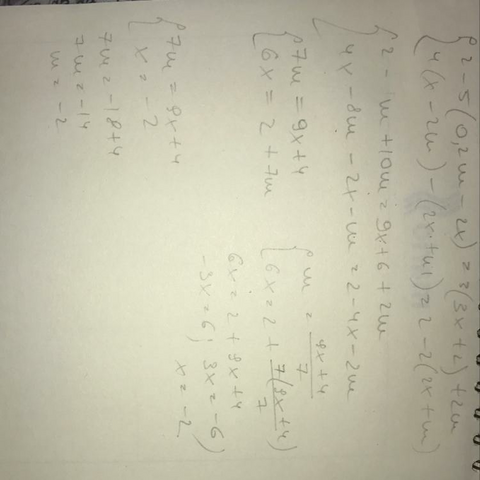 {2 - 5(0,2m - 2x) = 3(3x + 2) + 2m
{4(x - 2m) - (2x + m) = 2 - 2(2x + m)
{2 - 1m + 10m = 9x + 6 + 2m
{4x - 8m - 2x - m = 2 - 4x - 2m
{7m = 9x + 4
{6x = 2 + 7m
{m = 9x + 4 / 7
{6x = 2 + 7(9x + 4) / 7
6x = 2 + 9x + 4
-3x = 6; 3x = -6)
x = -2
{7m = 9x + 4
{x = -2
7m = -18 + 4
7m = -14
m = -2